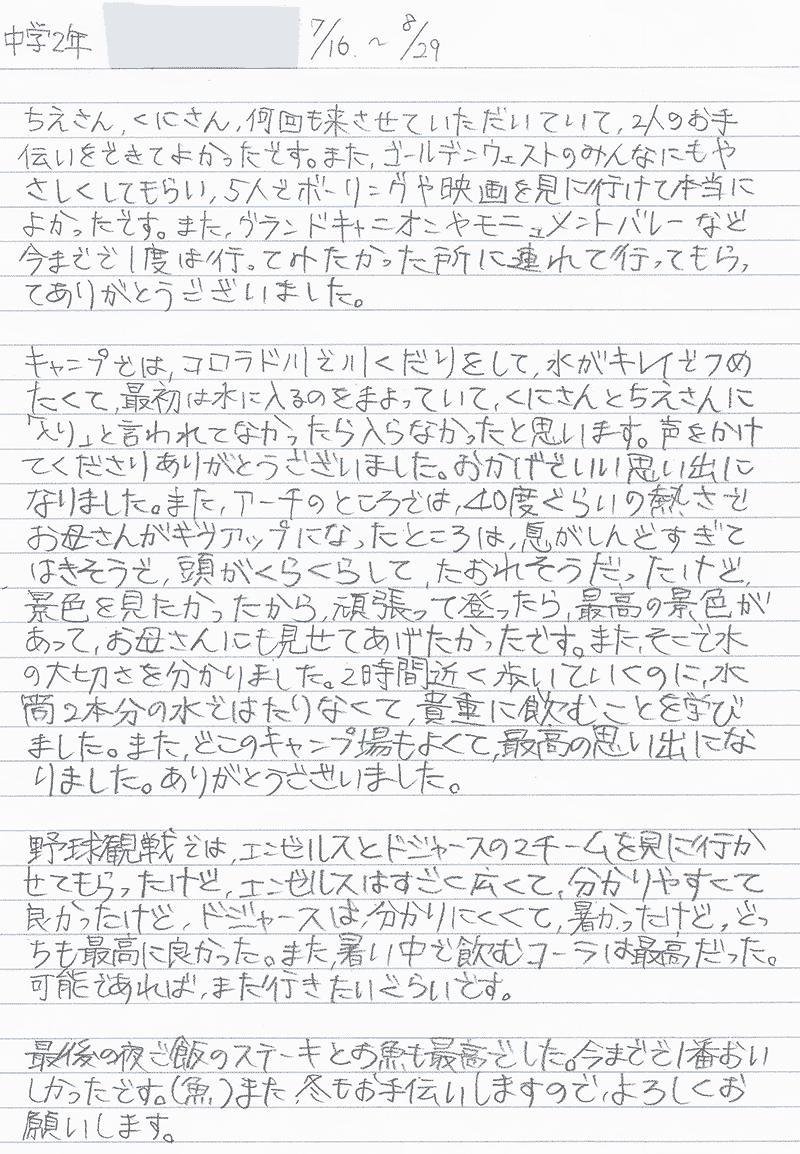 中学2年 7/16. ～ 8/29
ちえさん、くにさん、何回も来させていただいていて、2人のお手
伝いをできてよかったです。また、ゴールデンウェストのみんなにもや
さしくしてもらい、5人でボーリングや映画を見に行けて本当に
よかったです。また、グランドキャニオンやモニュメントバレーなど
今までで1度は行ってみたかった所に連れて行ってもらっ
てありがとうございました。
キャンプでは、コロラド川で川くだりをして、水がキレイでつめ
たくて、最初は水に入るのをまよっていて、くにさんとちえさんに
「入り」と言われてなかったら入らなかったと思います。声をかけ
てくださりありがとうございました。おかげでいい思い出に
なりました。また、アーチのところでは、40度ぐらいの熱さで
お母さんがギヴアップになったところは、息がしんどすぎて
はきそうで、頭がくらくらして、たおれそうだったけど、
景色を見たかったから、頑張って登ったら、最高の景色が
あって、お母さんにも見せてあげたかったです。また、そこで水
の大切さを分かりました。2時間近く歩いていくのに、水
筒2本分の水ではたりなくて、貴重に飲むことを学び
ました。また、どこのキャンプ場もよくて、最高の思い出にな
りました。ありがとうございました。
野球観戦では、エンゼルスとドジャースの2チームを見に行か
せてもらったけど、エンゼルスはすごく広くて、分かりやすくて
良かったけど、ドジャースは、分かりにくくて、暑かったけど、どっ
ちも最高に良かった。また、暑い中で飲むコーラは最高だった。
可能であれば、また行きたいぐらいです。
最後の夜ご飯のステーキとお魚も最高でした。今までで1番おい
しかったです。(魚)また、冬もお手伝いしますので、よろしくお
願いします。